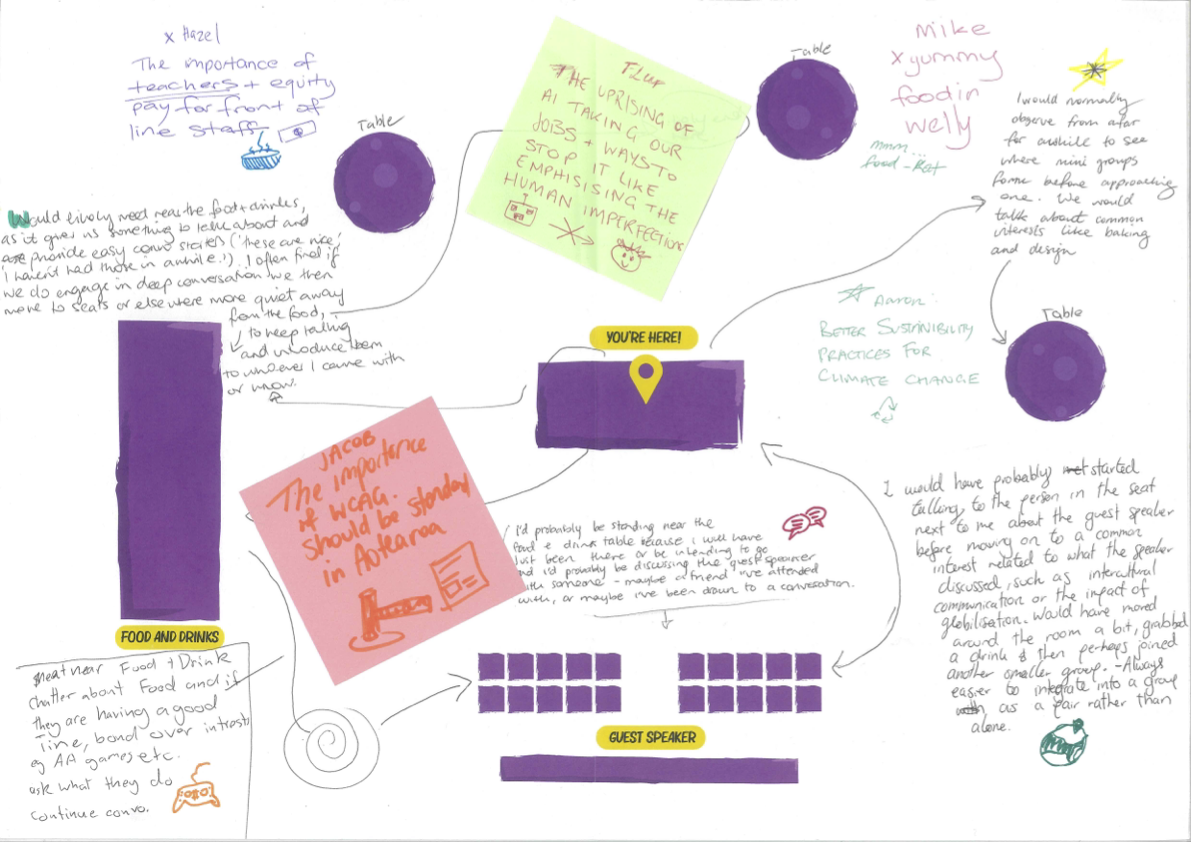 x Hazel
The importance of
teachers + equity
pay for front of
line staff
Table
FLUP
THE UPRISING OF
AI TAKING OUR
JOBS + WAYS TO
STOP IT LIKE
EMPHISISING THE
HUMAN IMPERFECTIONS
Table
Mike
x yummy
food in
welly
mmm...
food - Kat
I would normally
observe from afar
for awhile to see
where mini groups
form before approaching
one. We would
talk about common
interests like baking
and design
Table
Would likely meet near the food + drinks,
as it gives us something to talk about and
provide easy convo starters ('these are nice',
'I haven't had those in awhile!'). I often find if
we do engage in deep conversation we then
move to seats or elsewhere more quiet away
from the food,
to keep talking
and introduce them
to whoever I came with
or know.
YOU'RE HERE!
Aaron:
BETTER SUSTAINIBILITY
PRACTICES FOR
CLIMATE CHANGE
JACOB
The importance
of WCAG.
should be standard
in Aotearoa
I'd probably be standing near the
food & drink table because i will have
just been there or be intending to go
and i'd probably be discussing the guest speaker
with someone - maybe a friend i've attended
with, or maybe i've been drawn to a conversation.
I would have probably started
talking to the person in the seat
next to me about the guest speaker
before moving on to a common
interest related to what the speaker
discussed, such as intercultural
communication or the impact of
globilisation. Would have moved
around the room a bit, grabbed
a drink & then perhaps joined
another smaller group. - Always
easier to integrate into a group
as a pair rather than
alone.
FOOD AND DRINKS
meat near Food + Drink
chatter about Food and if
they are having a good
time, bond over intrests
eg AA games etc.
ask what they do
continue convo.
GUEST SPEAKER